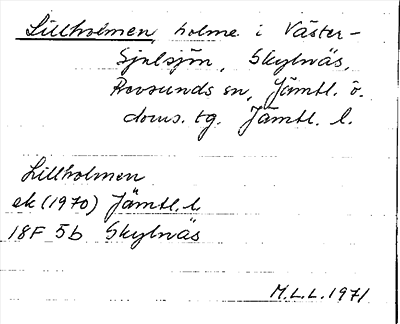 Lillholmen, holme i Väster-
Sjulsjön, Skyttnäs,
Rossunds sn, Jämtl. ö.
doms. tg. Jämtl. l.
Lillholmen
ek (1970) Jämtl. l
18F 5b Skyttnäs
M.L.L. 1971